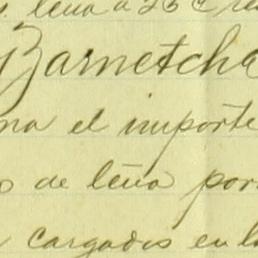 leña a 25 c
Barnetche
el importe
de leña por
cargados en la